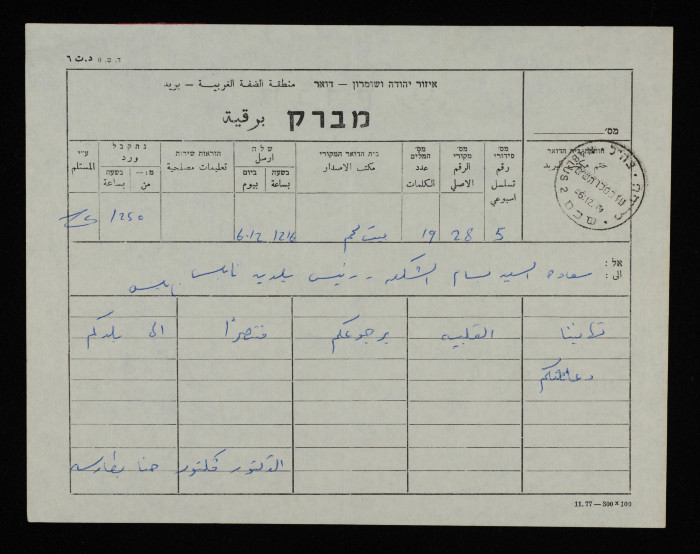 ד.ס. 6 د.ت ٦
איזור יהודה ושומרון — דואר منطقة الضفة الغربية — بريد
מברק برقية
מס׳
מס׳ סידורי رقم تسلسل اسبوعي
מס׳ מקורי الرقم الاصلي
מס׳ המלים عدد الكلمات
בית הדואר המקורי مكتب الاصدار
שלח ارسل
בשעה بساعة
ביום بيوم
הוראות שירות تعليمات مصلحية
נתקבל ورد
מ... من
בשעה بساعة
ע״י المستلم
5 28 19 بيت لحم 1216 6.12 1250
אל : الى :
سعادة السيد بسام الشكعه - رئيس بلدية نابلس نابلس
تهانينا القلبيه برجوعكم منتصرًا الى بلدكم
وعائلتكم
الدكتور فكتور حنا بطارسه
11.77 — 300 × 100